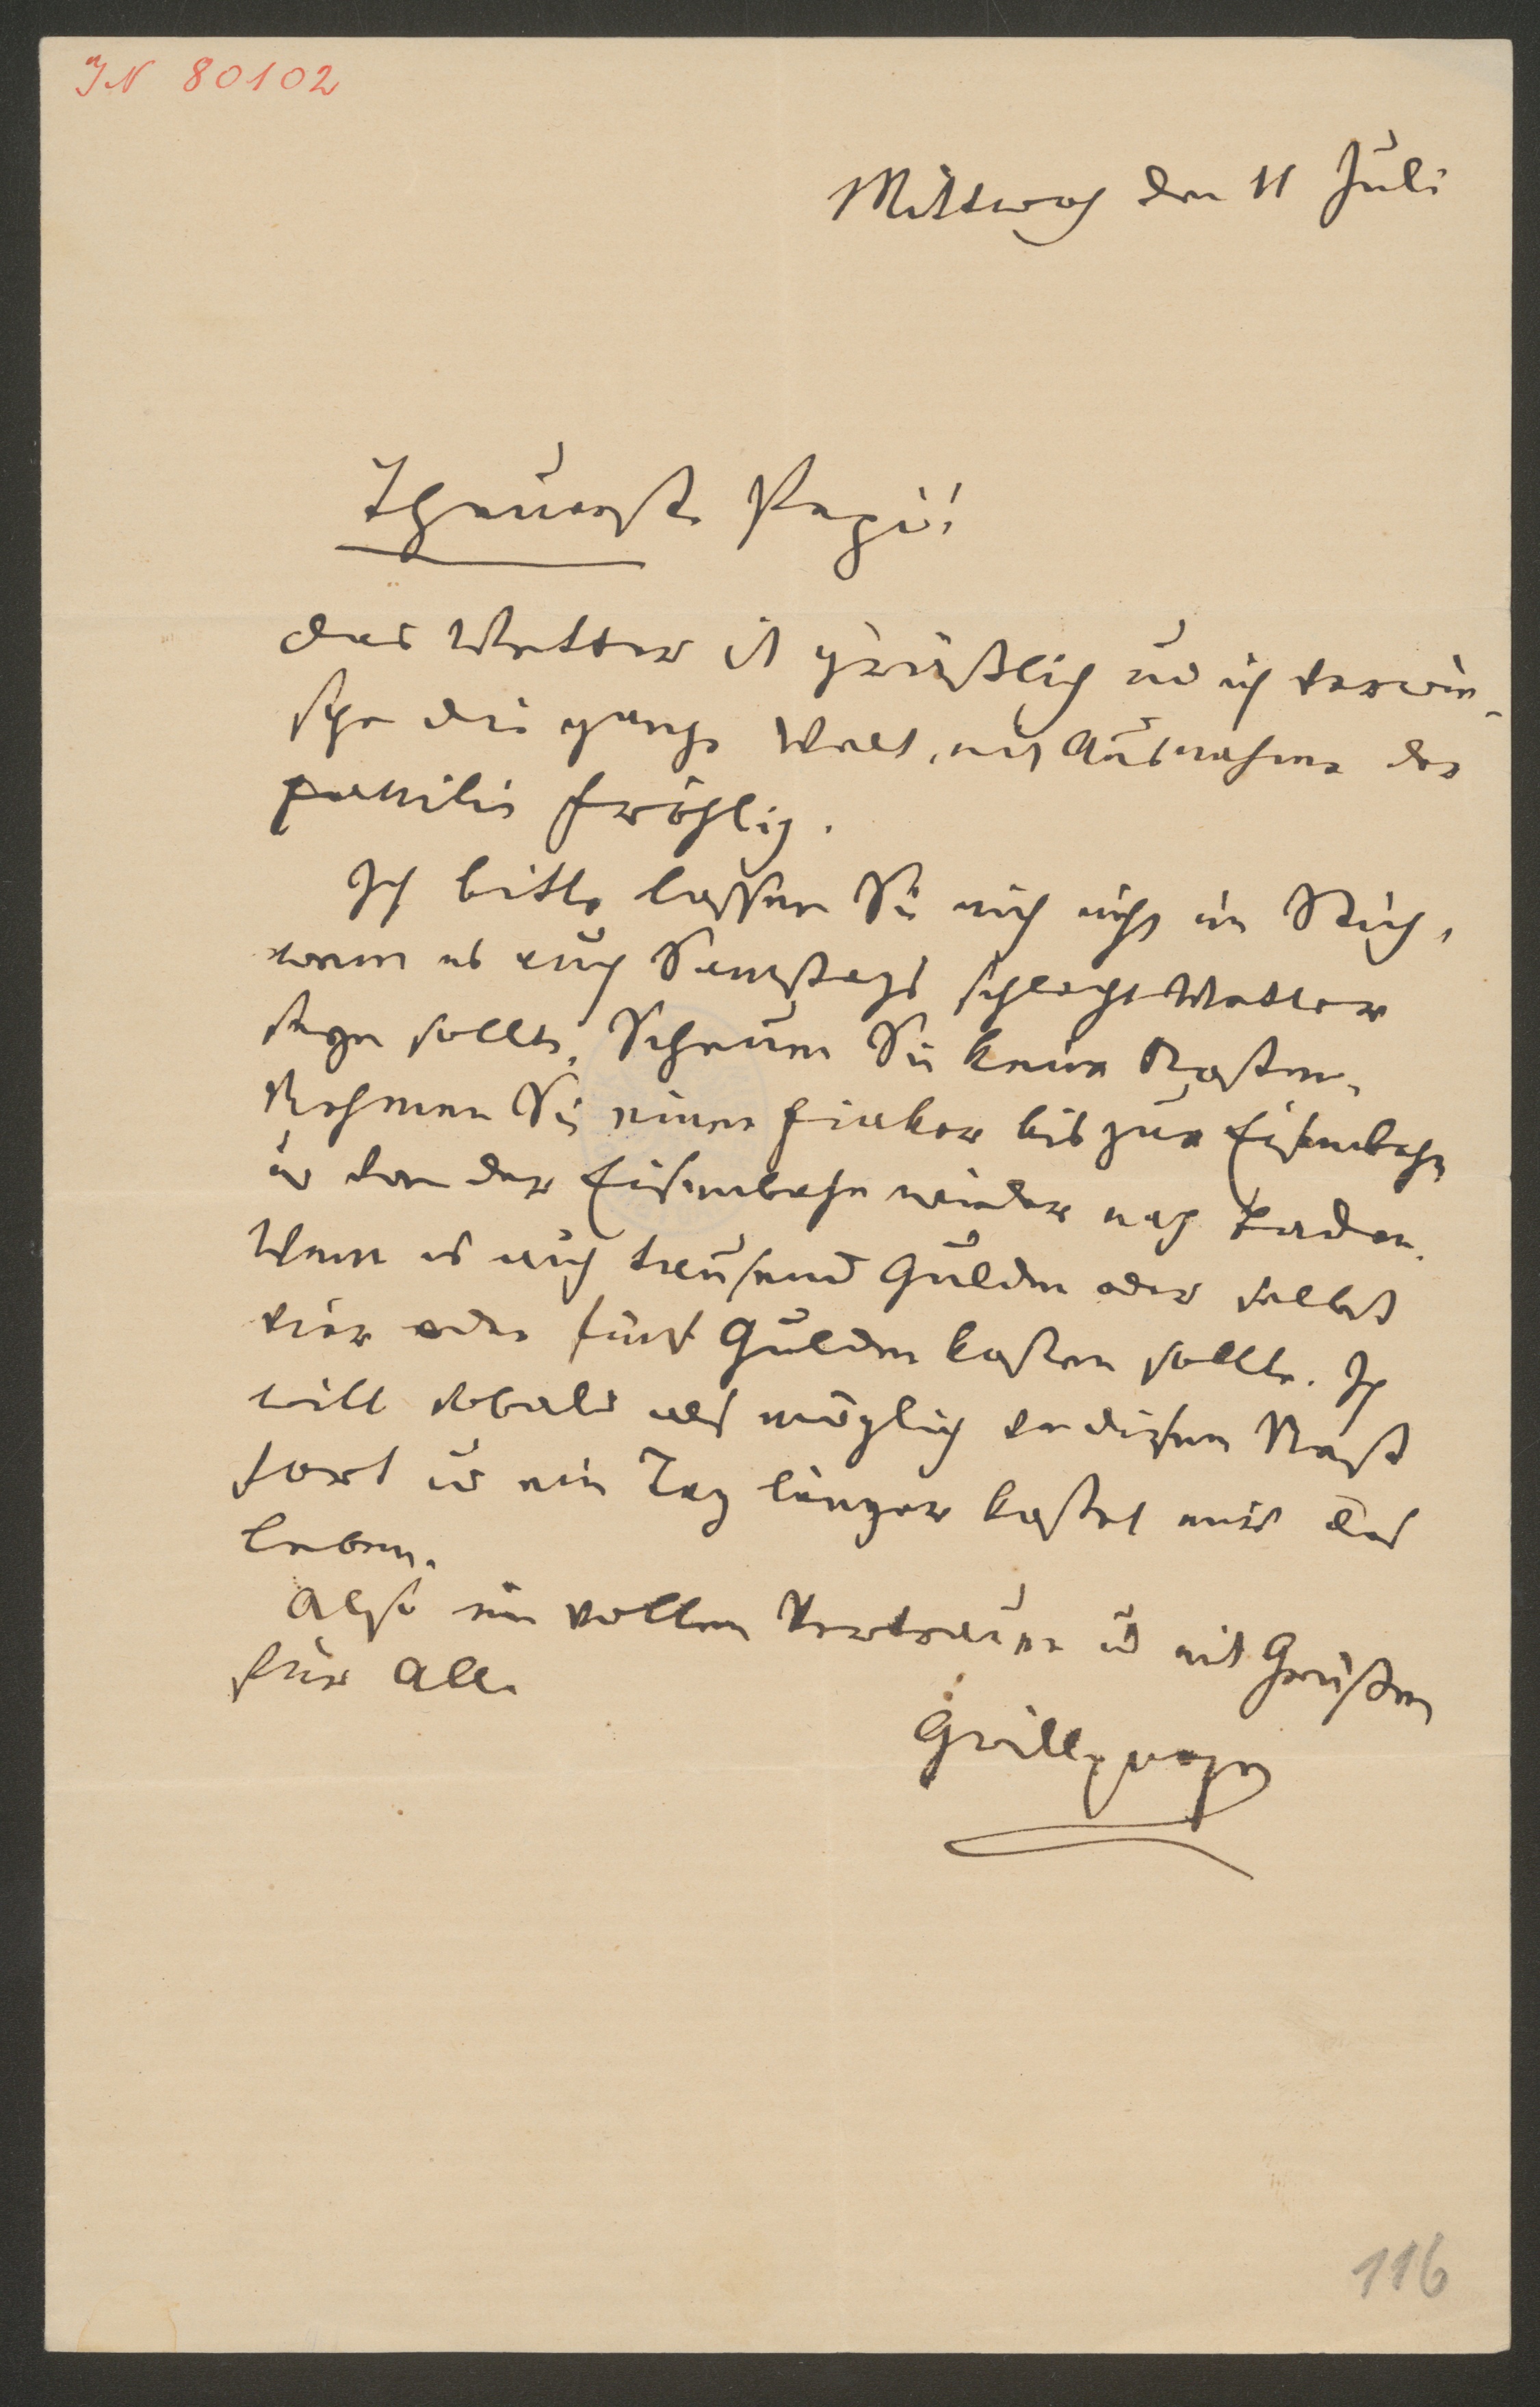 IN 80102
Mittwoch den 11 Juli
Theuerste Pepi!
das Wetter ist gräßlich und ich verwün-
sche die ganze Welt, mit Ausnahme der
Familie Fröhlich.
Ich bitte lassen Sie mich nicht im Stich,
wenn es auch Samstags schlecht Wetter
seyn sollte. Scheuen Sie keine Kosten.
Nehmen Sie einen Fiaker bis zur Eisenbahn
u von der Eisenbahn wieder nach Baden.
Wenn es auch tausend Gulden oder selbst
vier oder fünf Gulden kosten sollte. Ich
will sobald als möglich von diesem Nest
fort u ein Tag länger kostet mir das
Leben.
Also im vollen Vertrauen u mit Grüßen
für Alle
Grillparzer
116